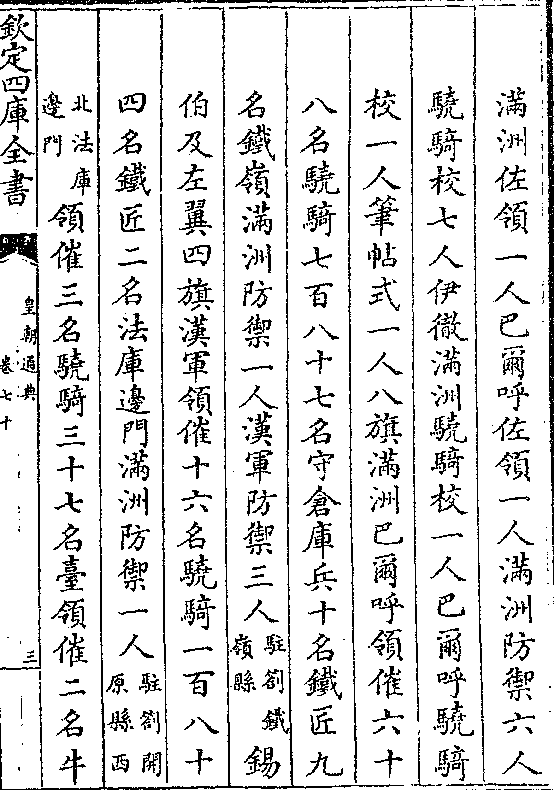 滿洲佐領一人巴爾呼佐領一人滿洲防禦六人
驍騎校七人伊徹滿洲驍騎校一人巴爾呼驍騎
校一人筆帖式一人八旗滿洲巴爾呼領催六十
八名驍騎七百八十七名守倉庫兵十名鐵匠九
名鐵嶺滿洲防禦一人漢軍防禦三人駐劄鐵嶺縣錫
伯及左翼四旗漢軍領催十六名驍騎一百八十
四名鐵匠二名法庫邊門滿洲防禦一人駐劄開原縣西
北法庫邊門領催三名驍騎三十七名臺領催二名牛
欽定四庫全書
皇朝通典
卷七十
三